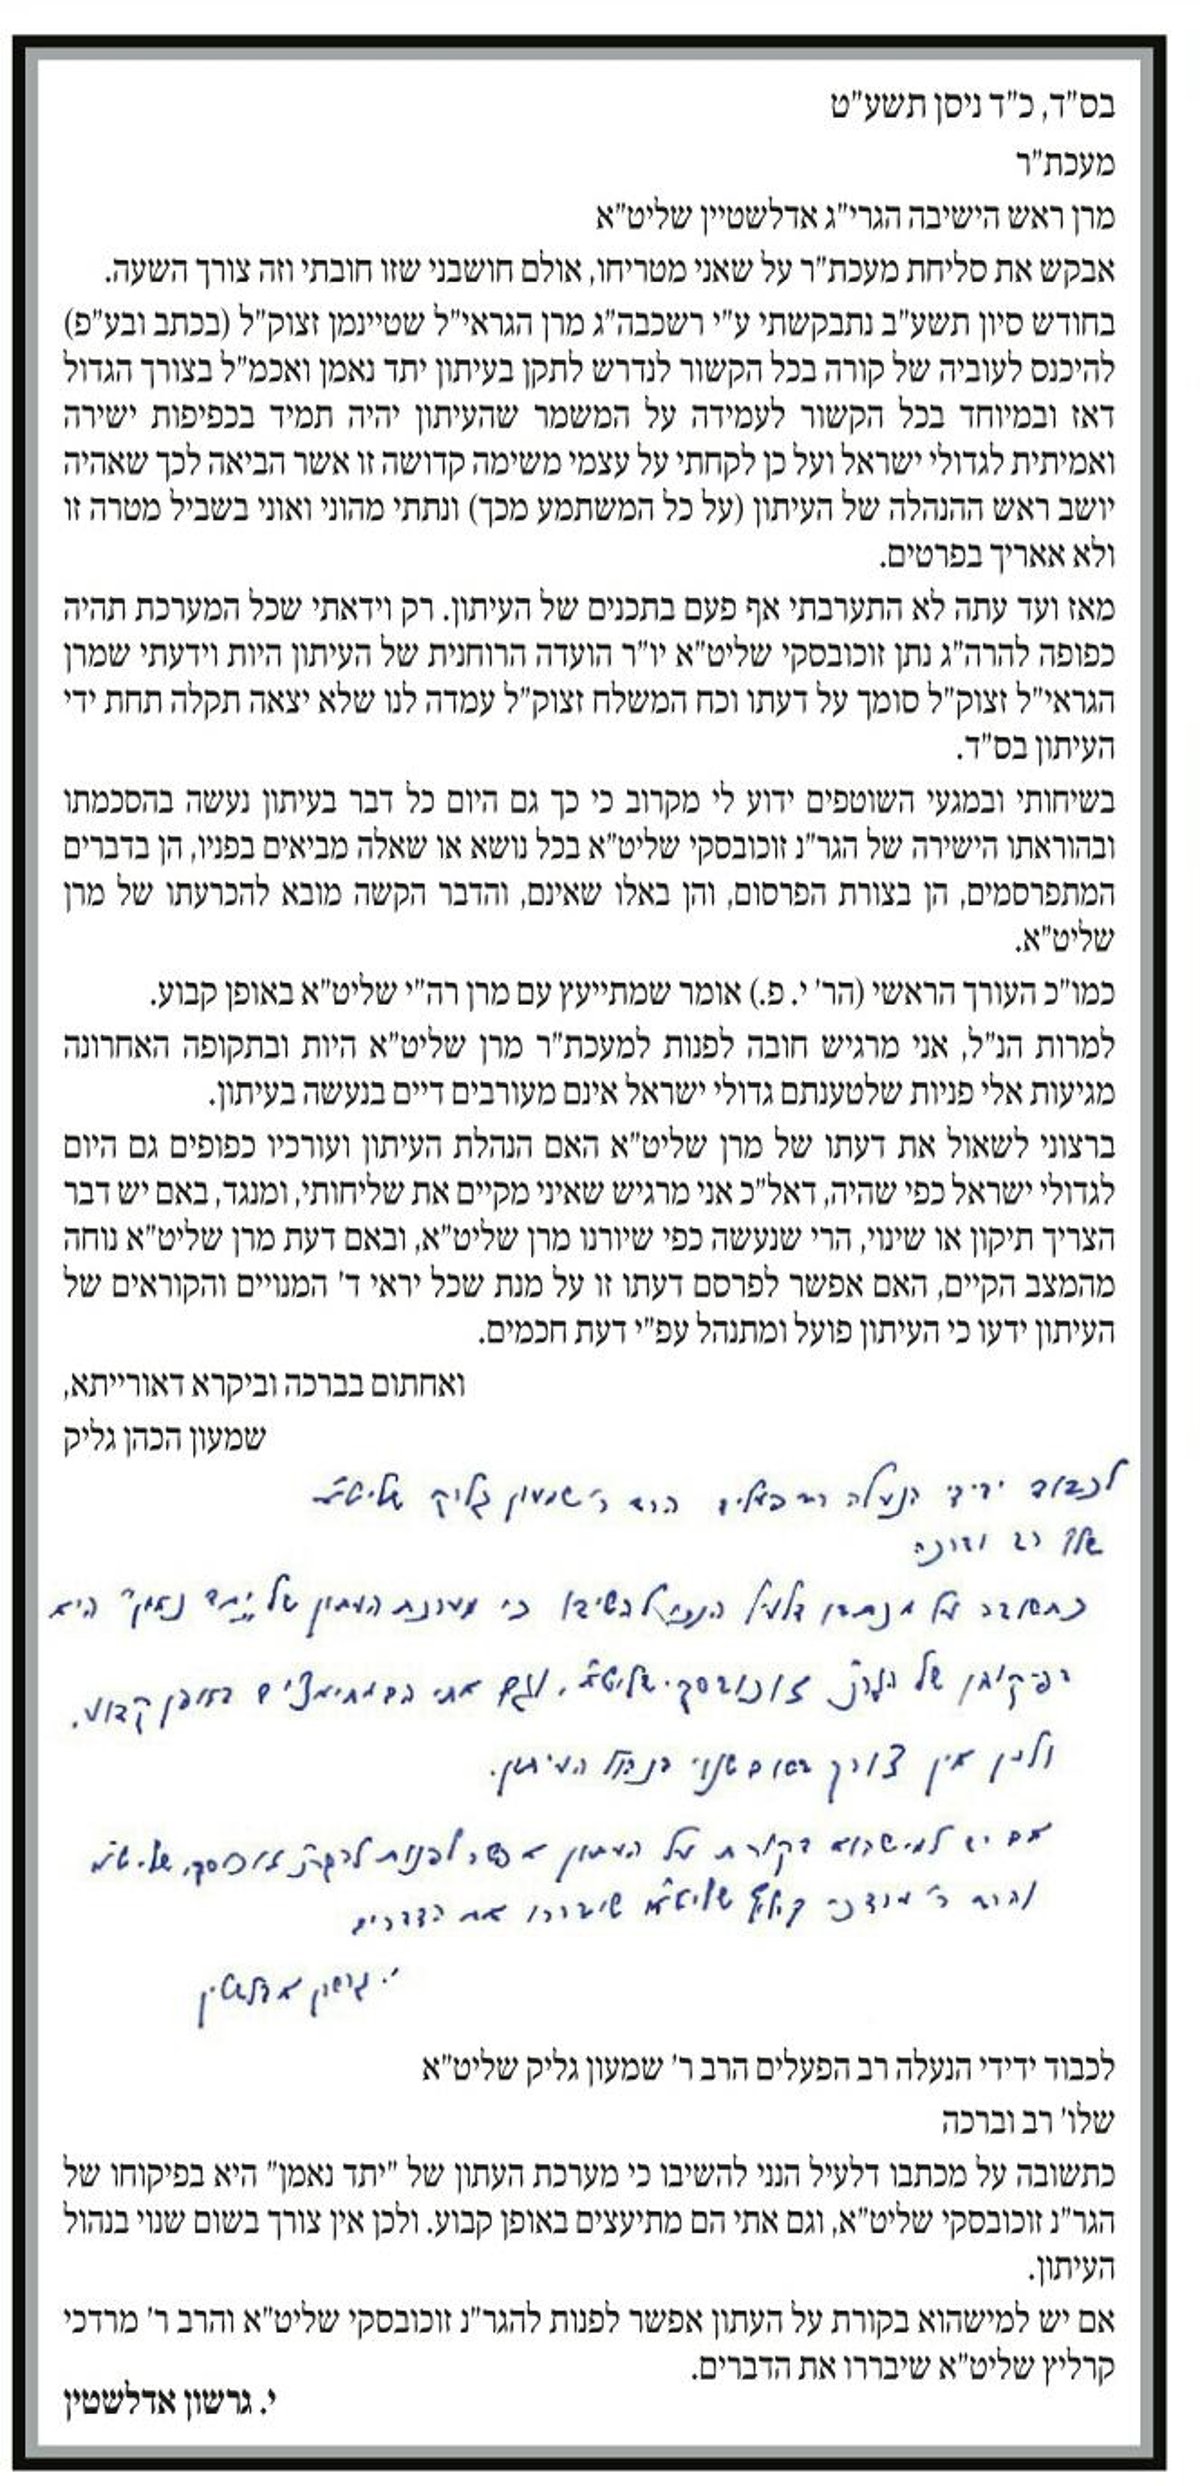 בס"ד, כ"ד ניסן תשע"ט
מעכת"ר
מרן ראש הישיבה הגרי"ג אדלשטיין שליט"א
אבקש את סליחת מעכת"ר על שאני מטריחו, אולם חושבני שזו חובתי וזה צורך השעה.
בחודש סיון תשע"ב נתבקשתי ע"י רשכבה"ג מרן הגראי"ל שטיינמן זצוק"ל (בכתב ובע"פ)
להיכנס לעוביה של קורה בכל הקשור לנדרש לתקן בעיתון יתד נאמן ואכמ"ל בצורך הגדול
דאז ובמיוחד בכל הקשור לעמידה על המשמר שהעיתון יהיה תמיד בכפיפות ישירה
ואמיתית לגדולי ישראל ועל כן לקחתי על עצמי משימה קדושה זו אשר הביאה לכך שאהיה
יושב ראש ההנהלה של העיתון (על כל המשתמע מכך) ונתתי מהוני ואוני בשביל מטרה זו
ולא אאריך בפרטים.
מאז ועד עתה לא התערבתי אף פעם בתכנים של העיתון. רק וידאתי שכל המערכת תהיה
כפופה להרה"ג נתן זוכובסקי שליט"א יו"ר הועדה הרוחנית של העיתון היות וידעתי שמרן
הגראי"ל זצוק"ל סומך על דעתו וכח המשלח זצוק"ל עמדה לנו שלא יצאה תקלה תחת ידי
העיתון בס"ד.
בשיחותי ובמגעי השוטפים ידוע לי מקרוב כי כך גם היום כל דבר בעיתון נעשה בהסכמתו
ובהוראתו הישירה של הגר"נ זוכובסקי שליט"א בכל נושא או שאלה מביאים בפניו, הן בדברים
המתפרסמים, הן בצורת הפרסום, והן באלו שאינם, והדבר הקשה מובא להכרעתו של מרן
שליט"א.
כמו"כ העורך הראשי (הר' י. פ.) אומר שמתייעץ עם מרן רה"י שליט"א באופן קבוע.
למרות הנ"ל, אני מרגיש חובה לפנות למעכת"ר מרן שליט"א היות ובתקופה האחרונה
מגיעות אלי פניות שלטענתם גדולי ישראל אינם מעורבים דיים בנעשה בעיתון.
ברצוני לשאול את דעתו של מרן שליט"א האם הנהלת העיתון ועורכיו כפופים גם היום
לגדולי ישראל כפי שהיה, דאל"כ אני מרגיש שאיני מקיים את שליחותי, ומנגד, באם יש דבר
הצריך תיקון או שינוי, הרי שנעשה כפי שיורנו מרן שליט"א, ובאם דעת מרן שליט"א נוחה
מהמצב הקיים, האם אפשר לפרסם דעתו זו על מנת שכל יראי ד' המנויים והקוראים של
העיתון ידעו כי העיתון פועל ומתנהל עפ"י דעת חכמים.
ואחתום בברכה וביקרא דאורייתא,
שמעון הכהן גליק
לכבוד ידידי הנעלה רב פעלים הרב ר' שמעון גליק שליט"א
שלו' רב וברכה
כתשובה על מכתבו דלעיל הנני להשיבו כי מערכת העתון של "יתד נאמן" היא
בפיקוחו של הגר"נ זוכובסקי שליט"א, וגם אתי הם מתיעצים באופן קבוע.
ולכן אין צורך בשום שנוי בנהול העיתון.
אם יש למישהוא בקורת על העתון אפשר לפנות להגר"נ זוכובסקי שליט"א
והרב ר' מרדכי קרליץ שליט"א שיבררו את הדברים
י. גרשון אדלשטין
לכבוד ידידי הנעלה רב הפעלים הרב ר' שמעון גליק שליט"א
שלו' רב וברכה
כתשובה על מכתבו דלעיל הנני להשיבו כי מערכת העתון של "יתד נאמן" היא בפיקוחו של
הגר"נ זוכובסקי שליט"א, וגם אתי הם מתיעצים באופן קבוע. ולכן אין צורך בשום שנוי בנהול
העיתון.
אם יש למישהוא בקורת על העתון אפשר לפנות להגר"נ זוכובסקי שליט"א והרב ר' מרדכי
קרליץ שליט"א שיבררו את הדברים.
י. גרשון אדלשטין